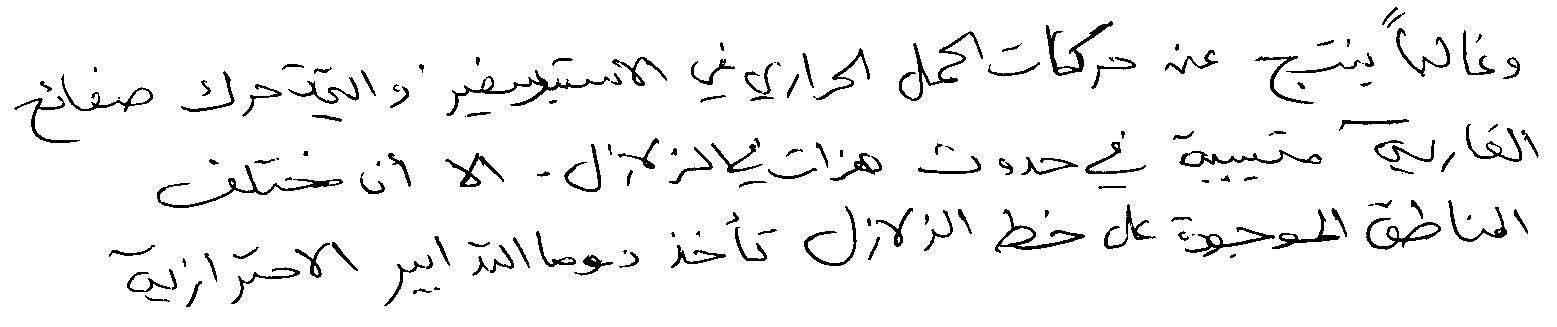 وغالباً ينتج عن حركات الحمل الحراري في الاستينوسفير والتي تحرك صفائح
القارية متسببة في حدوث هزات في الزلازل. الا أن مختلف
المناطق الموجودة على خط الزلازل تأخذ دوما التدابير الاحترازية